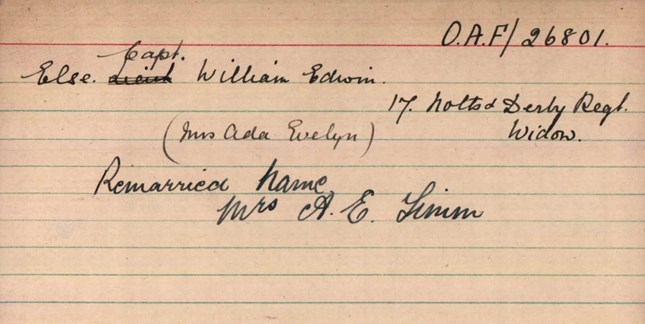 O.A.F/26801.
Capt.
Else. Lieut William Edwin.
17. Notts & Derby Regt.
(Mrs Ada Evelyn) Widow.
Remarried Name
Mrs A. E.